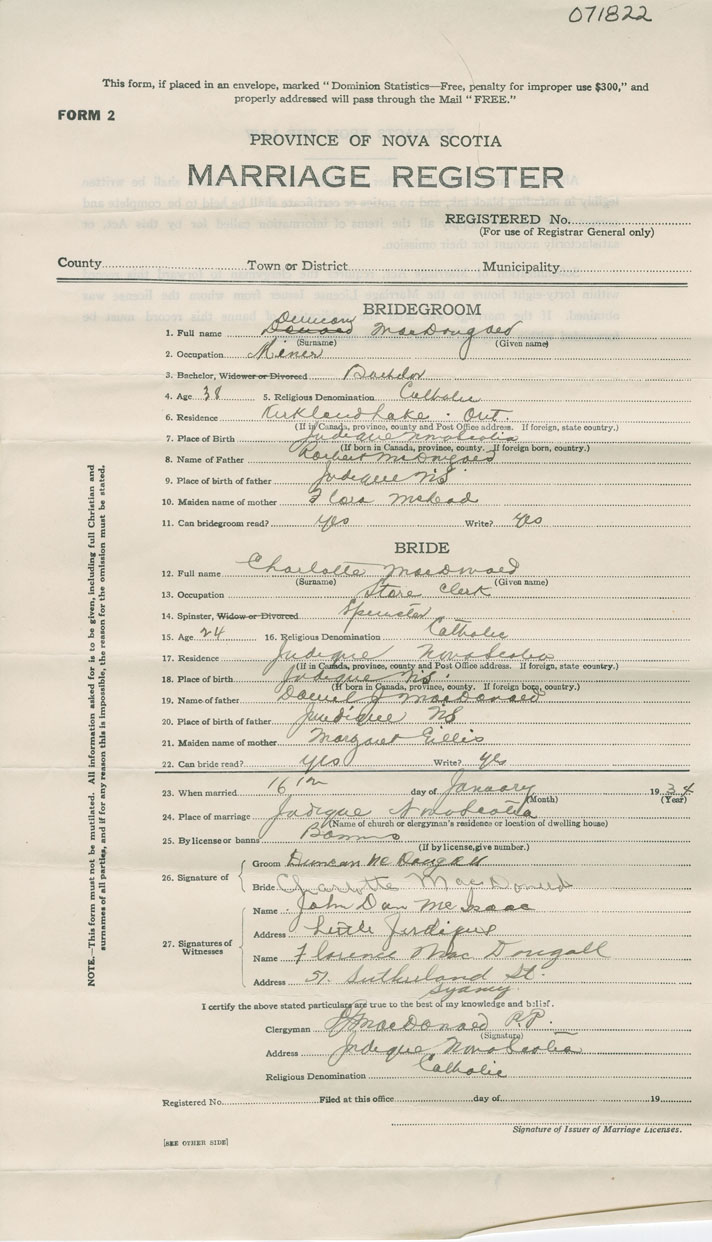 071822
This form, if placed in an envelope, marked "Dominion Statistics—Free, penalty for improper use $300," and
properly addressed will pass through the Mail "FREE."
FORM 2
PROVINCE OF NOVA SCOTIA
MARRIAGE REGISTER
REGISTERED No.
(For use of Registrar General only)
County Town or District Municipality
BRIDEGROOM
Duncan
1. Full name MacDougald
(Surname) (Given name)
2. Occupation Miner
3. Bachelor, Widower or Divorced Bachelor
4. Age 38 5. Religious Denomination Catholic
6. Residence Kirkland Lake. Ont.
(If in Canada, province, county and Post Office address. If foreign, state country.)
7. Place of Birth Judique Nova Scotia
(If born in Canada, province, county. If foreign born, country.)
8. Name of Father
9. Place of birth of father Judique NS
10. Maiden name of mother Flora
11. Can bridegroom read? yes Write? yes
BRIDE
12. Full name Charlotte MacDonald
(Surname) (Given name)
13. Occupation Store Clerk
14. Spinster, Widow or Divorced Spinster
15. Age 24 16. Religious Denomination Catholic
17. Residence Judique Nova Scotia
(If in Canada, province, county and Post Office address. If foreign, state country.)
18. Place of birth Judique NS.
(If born in Canada, province, county. If foreign born, country.)
19. Name of father Daniel J MacDonald
20. Place of birth of father Judique NS
21. Maiden name of mother Margaret Gillis
22. Can bride read? yes Write? yes
23. When married 16th day of January 1934
(Month) (Year)
24. Place of marriage Judique Nova Scotia
(Name of church or clergyman's residence or location of dwelling house)
25. By license or banns Banns
(If by license, give number.)
26. Signature of
Groom Duncan Mc Dougall
Bride Charlotte MacDonald
27. Signatures of Witnesses
Name John Dan Mc Isaac
Address Little Judique
Name Florence Mac Dougall
Address 57. Sutherland St.
Sydney.
I certify the above stated particulars are true to the best of my knowledge and belief.
Clergyman MacDonald P.P.
(Signature)
Address Judique Nova Scotia
Religious Denomination Catholic
Registered No. Filed at this office day of 19
Signature of Issuer of Marriage Licenses.
[SEE OTHER SIDE]
NOTE.—This form must not be mutilated. All information asked for is to be given, including full Christian and
surnames of all parties, and if for any reason this is impossible, the reason for the omission must be stated.